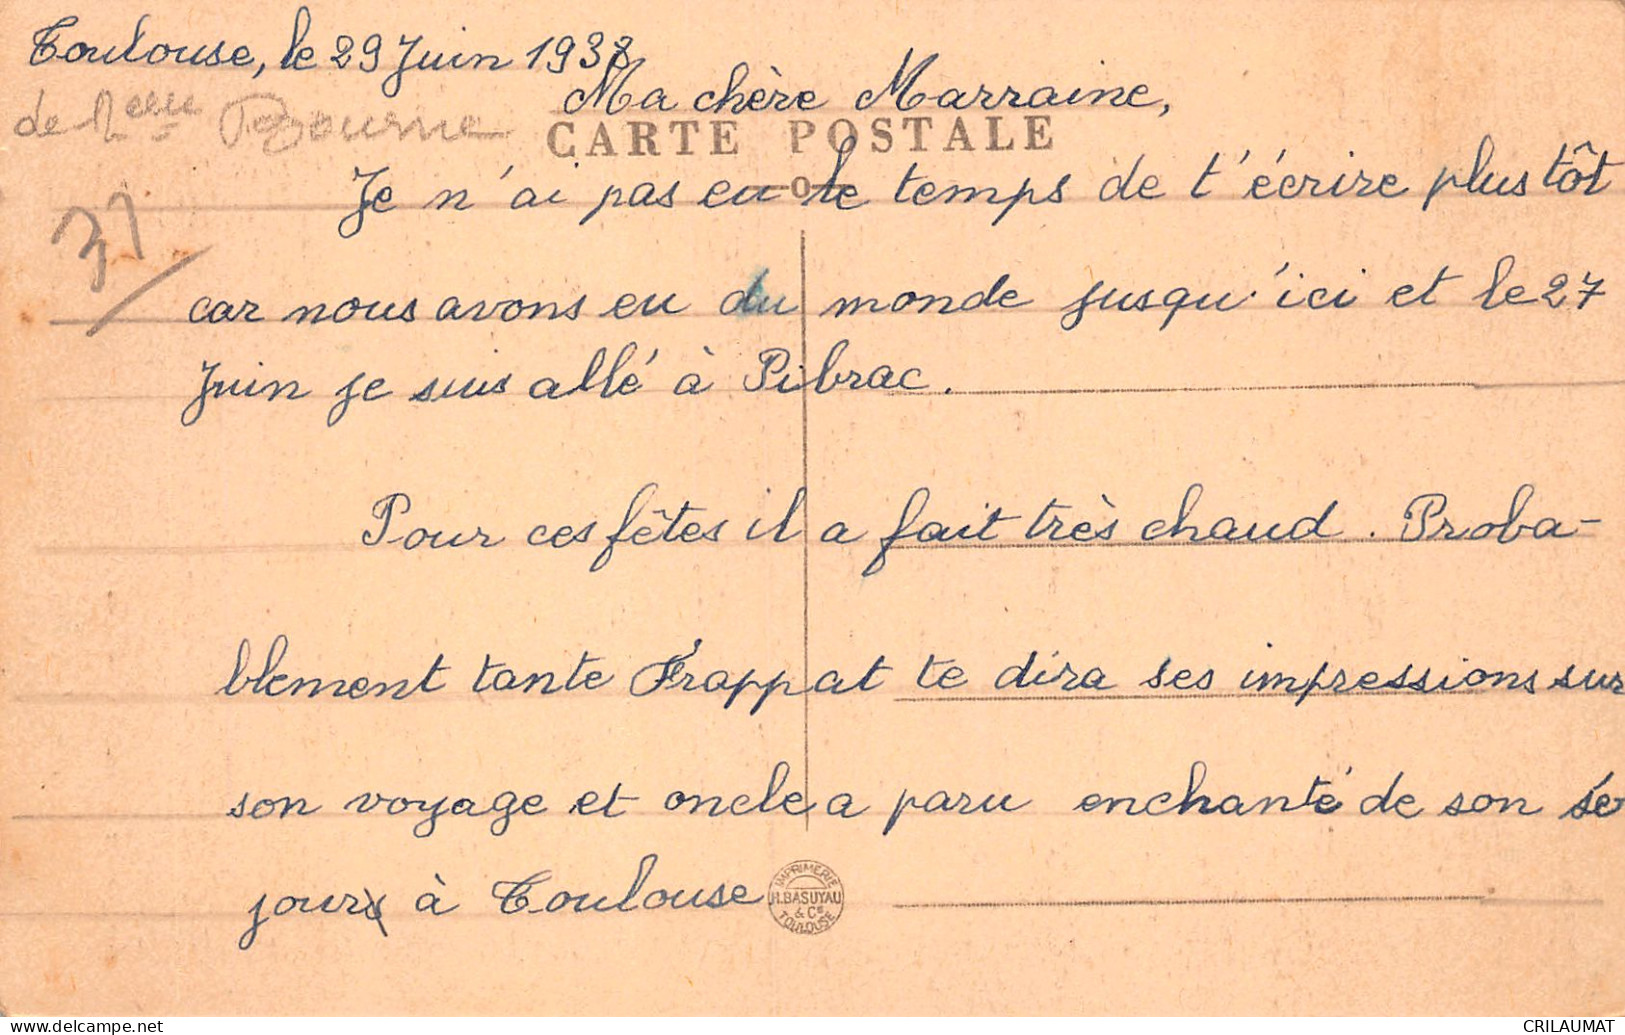 Toulouse, le 29 Juin 1938
Ma chère Marraine,
de
CARTE POSTALE
Je n'ai pas eu le temps de t'écrire plus tôt
31
car nous avons eu du monde jusqu'ici et le 27
Juin je suis allé à Pibrac.
Pour ces fêtes il a fait très chaud. Proba-
blement tante Frappat te dira ses impressions sur
son voyage et oncle a paru enchanté de son sé
jour à Toulouse
IMPRIMERIE
H. BASUYAU
& Cie
TOULOUSE
CRILAUMAT